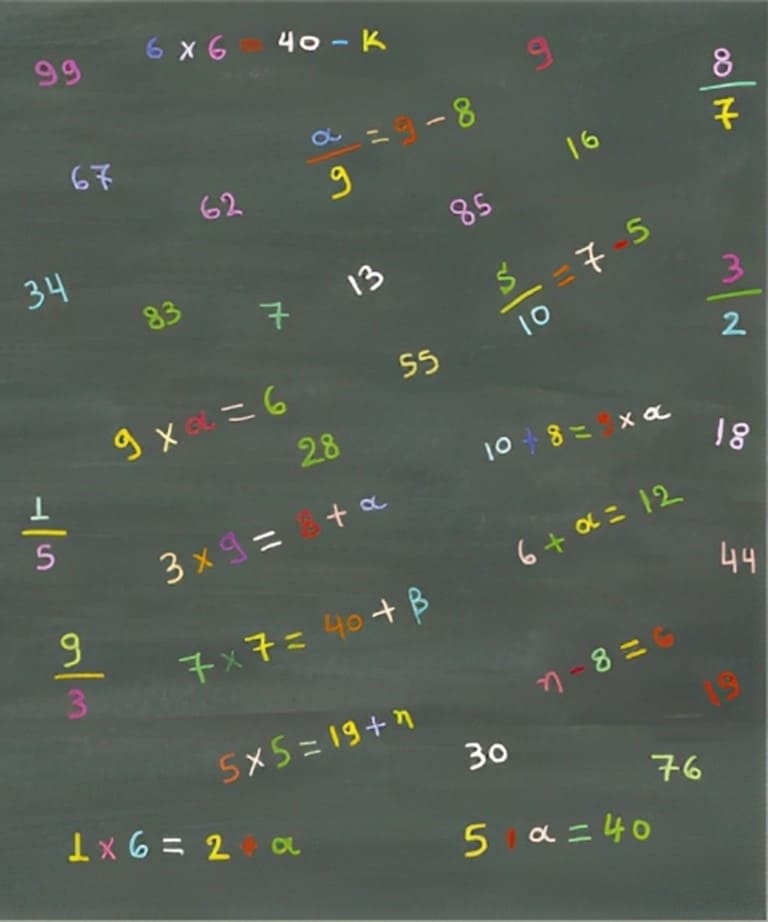 6 x 6 = 40 - K
9
99
8/7
α/9 = 9 - 8
16
67
62
85
5/10 = 7 - 5
3/2
34
13
83
7
55
9 x α = 6
28
10 + 8 = 9 x α
18
1/5
3 x 9 = 8 + α
6 + α = 12
44
9/3
7 x 7 = 40 + β
n - 8 = 6
19
5 x 5 = 19 + n
30
76
1 x 6 = 2 + α
5 α = 40